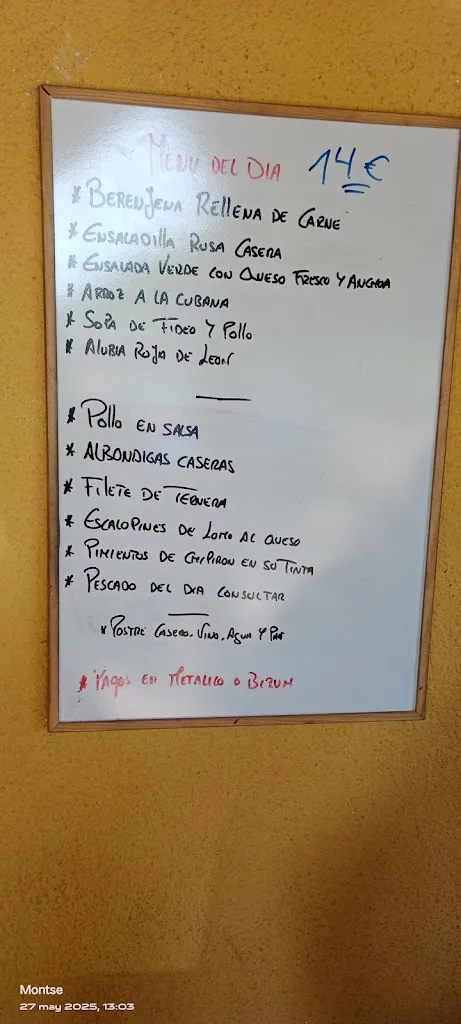 MENU DEL DIA 14€
* BERENJENA RELLENA DE CARNE
* ENSALADILLA RUSA CASERA
* ENSALADA VERDE CON QUESO FRESCO Y ANCHOA
* ARROZ A LA CUBANA
* SOPA DE FIDEO Y POLLO
* ALUBIA ROJA DE LEON
* POLLO EN SALSA
* ALBONDIGAS CASERAS
* FILETE DE TERNERA
* ESCALOPINES DE LOMO AL QUESO
* PIMIENTOS DE CHIPIRON EN SU TINTA
* PESCADO DEL DIA CONSULTAR
* POSTRE CASERO. VINO. AGUA Y PAN
* PAGOS EN METALICO O BIZUM
Montse
27 may 2025, 13:03